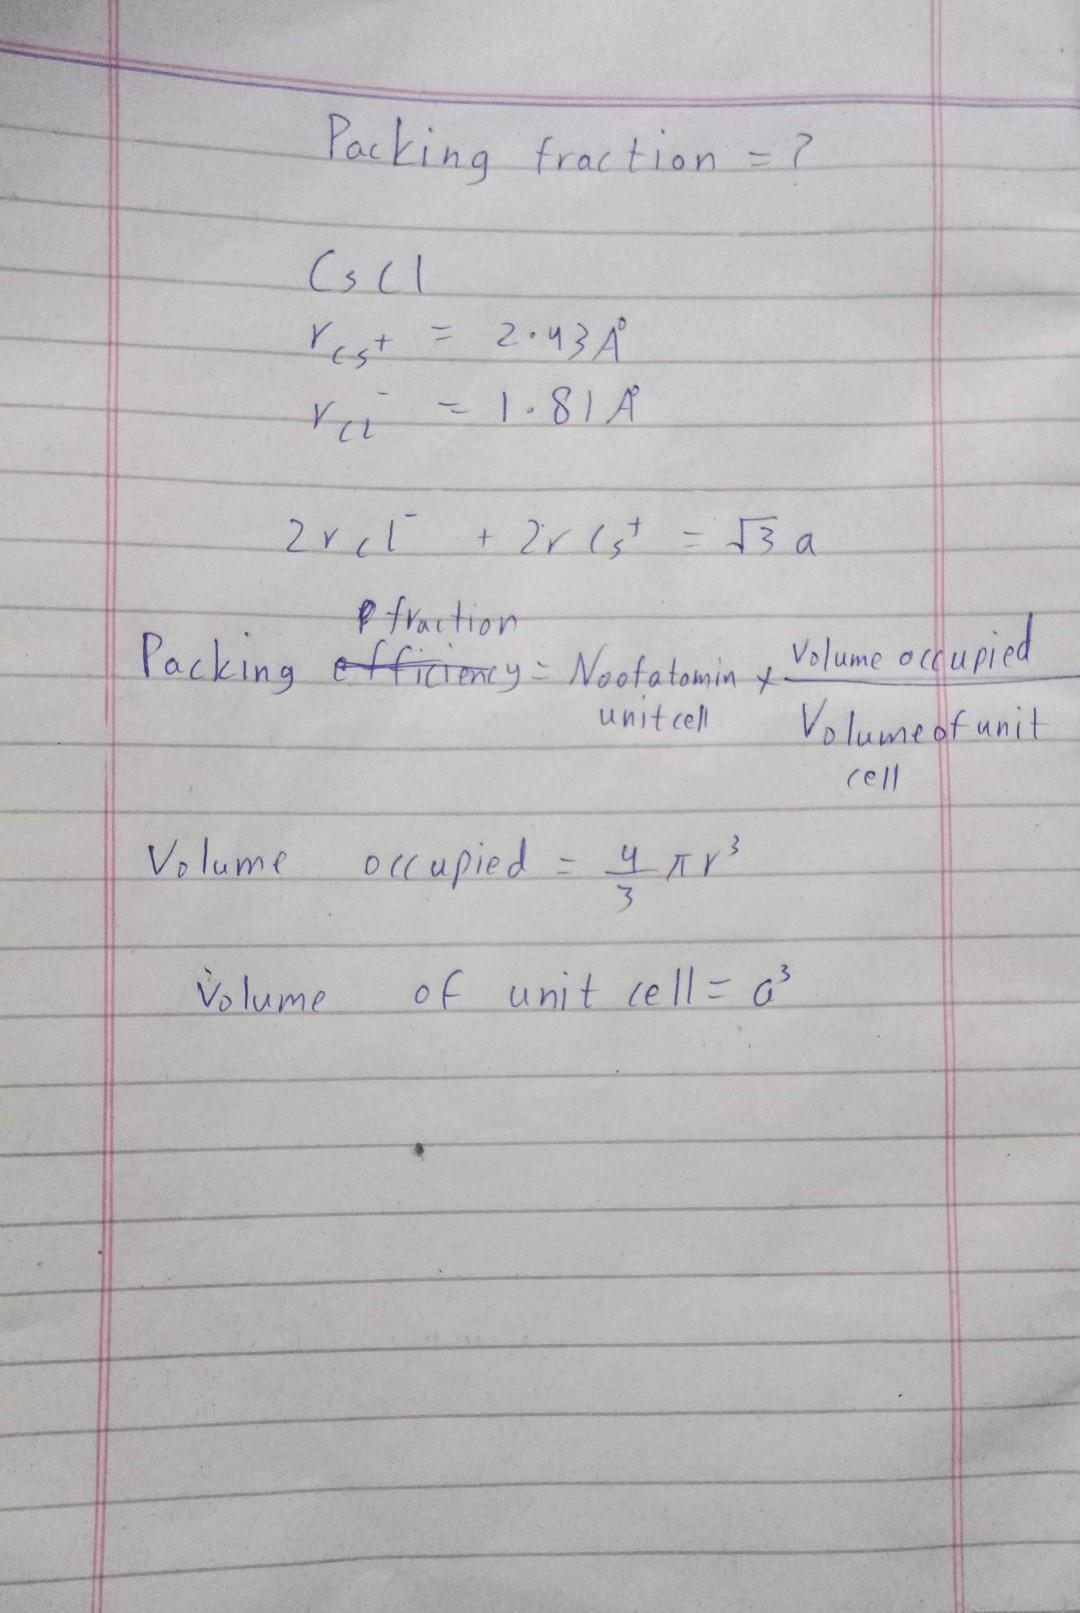 Packing fraction = ?
CsCl
rCs⁺ = 2.43 Å
rCl⁻ = 1.81 Å
2rCl⁻ + 2rCs⁺ = √3 a
fraction
Packing efficiency = No of atom in unit cell × Volume occupied / Volume of unit cell
Volume occupied = 4/3 πr³
Volume of unit cell = a³